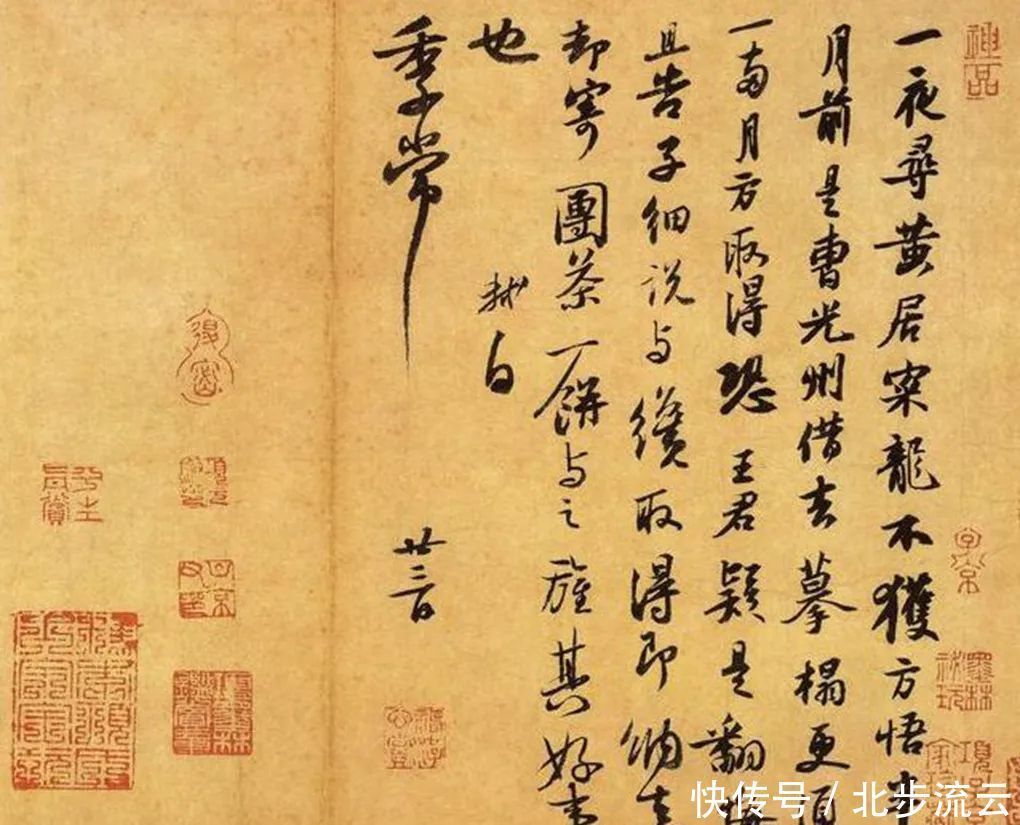 一夜尋黃居寀龍不獲方悟半
月前是曹光州借去摹榻更須
一兩月方取得恐王君疑是翻悔
且告子細說与纔取得即納去
却寄團茶一餅与之旌其好事
也
軾白
季常
廿三日
神品
快传号 / 北步流云